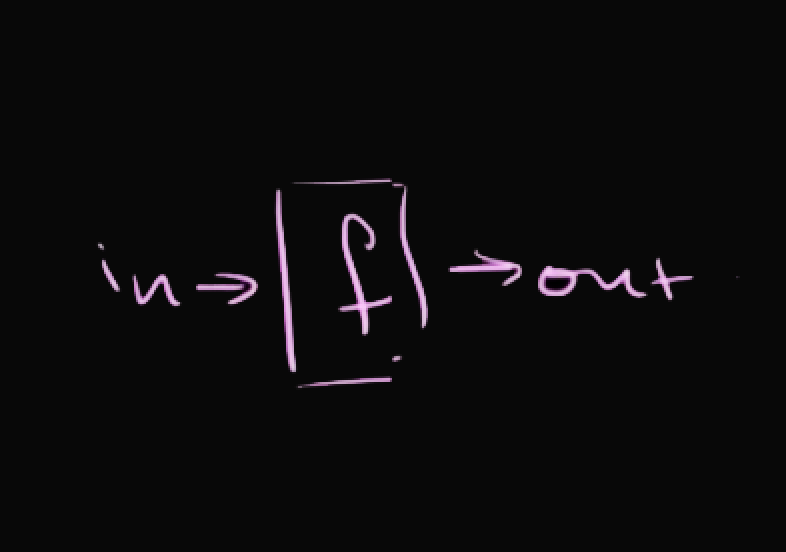 in → f → out